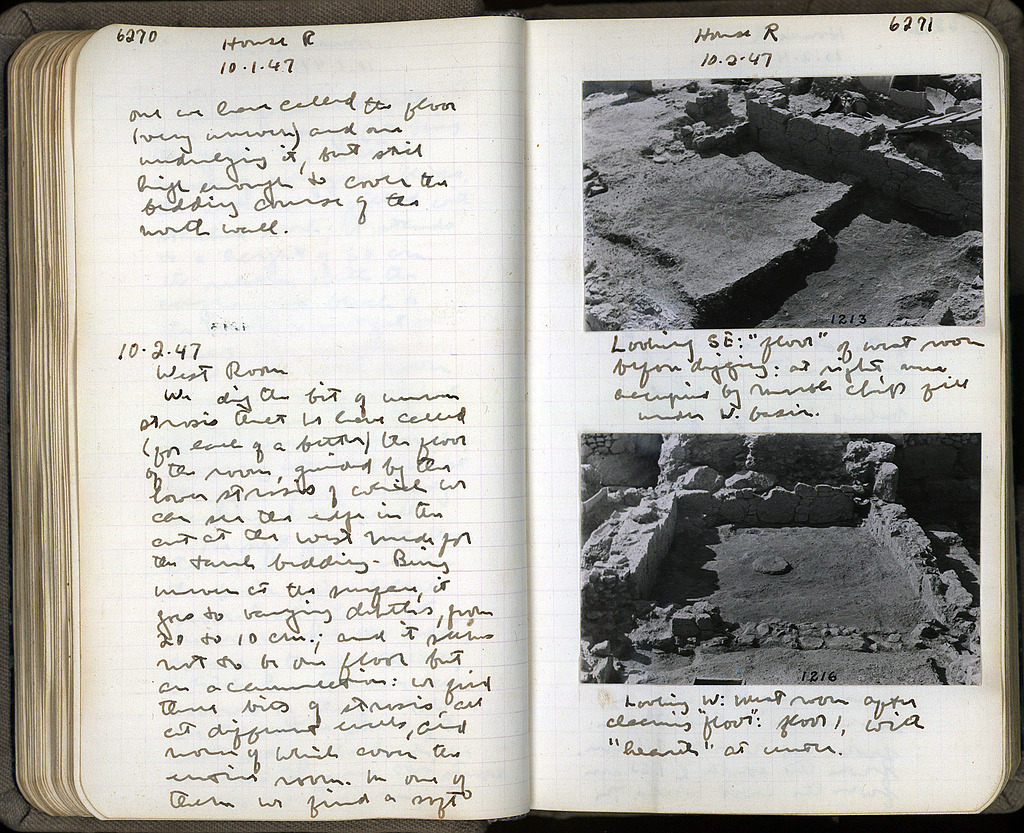 6270
House R
10·1·47
one we have called the floor
(very uneven) and one
underlying it, but still
high enough to cover the
bedding course of the
north wall.
10·2·47
West Room
We dig the bit of uneven
strosis that we have called
(for lack of a better) the floor
of the room, guided by the
lower strosis of which we
can see the edge in the
cut at the west made for
the tank bedding. Being
uneven at the surface, it
goes to varying depths, from
20 to 10 cm.; and it seems
not to be one floor but
an accumulation: we find
three bits of strosis all
at different levels, and
none of which cover the
entire room. In one of
them we find a soft
6271
House R
10·2·47
1213
Looking SE: "floor" of west room
before digging: at right area
occupied by marble chip fill
under W. basin.
1216
Looking W: West room after
cleaning "floor": floor 1, with
"hearth" at center.